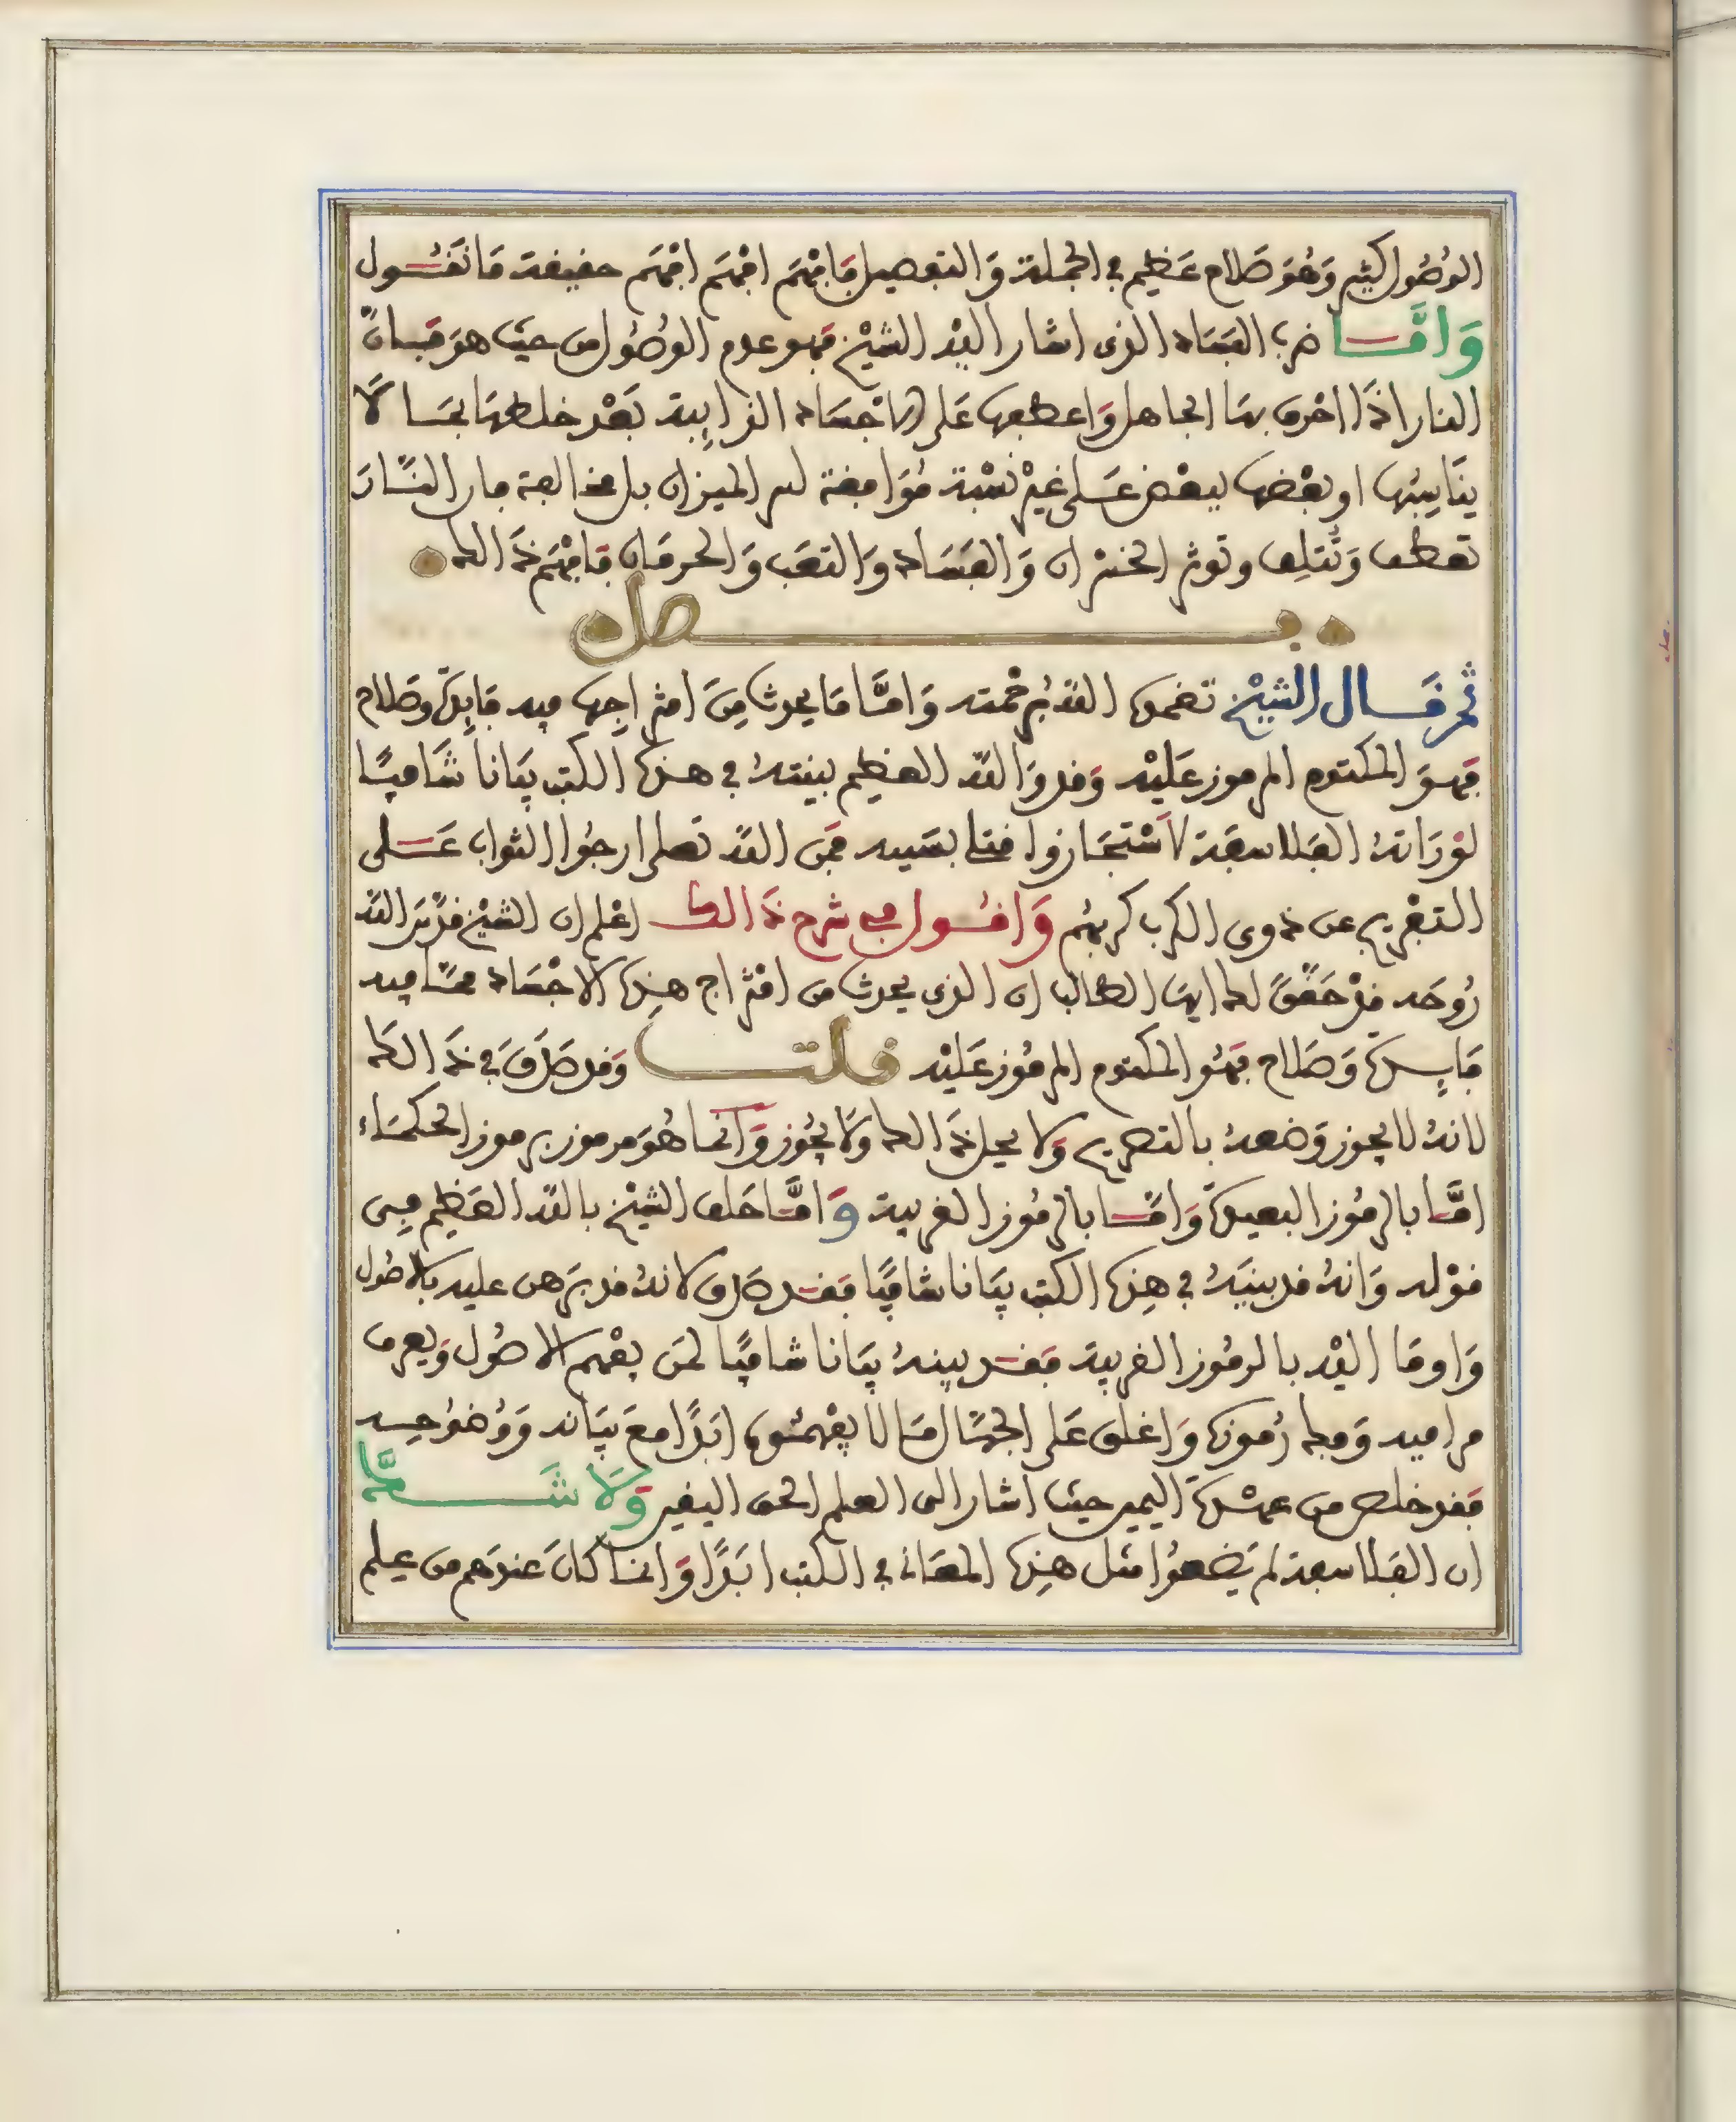 الوُصُول كثير وَهُوَ صَلاح عَظيم في الجملة وَالتفصيل فَافْهَم افْهَم افْهَم حقيقة مَا نَقُول
وَامَّا ضرب الفَسَاد الذى اشار اليْه الشيْخ فهو عدم الوُصُول من حيث هوَ فَسادٌ
النار اذَا احْرق بهَا الجاهل وَاعطبها عَلى الاجْسَاد الذايبة بَعْد خلطهَا بمَا لَا
ينَاسِبُها او بعْضها ببعْض عَلى غيْر نسْبة مُوَافقة لسر الميزان بل مخالفة فان النَّارَ
تعطب وَتُتلِف وتورث الخسْران وَالفسَاد وَالتعَب وَالحرمَان فَافْهَم ذَالك
فصل
ثم قال الشيْخ تغمدهُ اللهُ برحْمته وَامَّا مَا يحدث مِنَ امْتزاجِها فيه فَايِدة وصَلاح
فهوَ المكتوم المرموز عَليْه وَقد وَالله العظيم بينتهُ في هذه الكتب بيَانا شَافيًا
لوْ رَاتهُ الفَلاسفَة لاسْتجَازوا قتلى بسَببه فمن الله تعلى ارجُوا الثواب عَلى
التفْريج عن ذوى الكرب كربهُم وَاقُول في شرح ذَالك اعْلم ان الشيْخ قدَّسَ الله
رُوحَه قدْ حَقَّقَ لك ايهَا الطالب ان الذى يحدث من امْتزاج هذِه الاجْسَاد ممَّا فيه
فَايِدة وَصَلاح فهُو المكتوم المرمُوز عَليْه قلت وَقد صَدَقَ في ذَالك
لانهُ لا يجوز وَضعهُ بالتصريح وَلا يحل ذَالك وَلا يجُوز وَانما هُوَ مرموز برموز الحكمَاء
امَّا بالرمُوز البعيدة وَامَّا بالرمُوز القريبة وَامَّا حَلف الشيْخ بالله العَظيم في
قوْله وَانهُ قد بينَهُ في هذِه الكتب بيَانا شافيًا فقد صَدق لانهُ قد برَهن عليه بالاصُول
وَاومَا اليْه بالرمُوز القريبة فقد بينهُ بيَانا شافيًا لمن يفْهم الاصُول وَيعرف
مراميه وَفك رُموزه وَاغلق عَلى الجهَّال مَا لا يفْهمُونه ابَدًا معَ بيَانه وَوُضوُحِه
فقد خلص من عهْدة اليمين حيْث اشار الى العلم الحق اليقين وَلا شَكَّ
ان الفَلاسفة لم يَضعوُا مثل هذِه المعَانى في الكتب ابَدًا وَانما كانَ عندَهم من عِلم